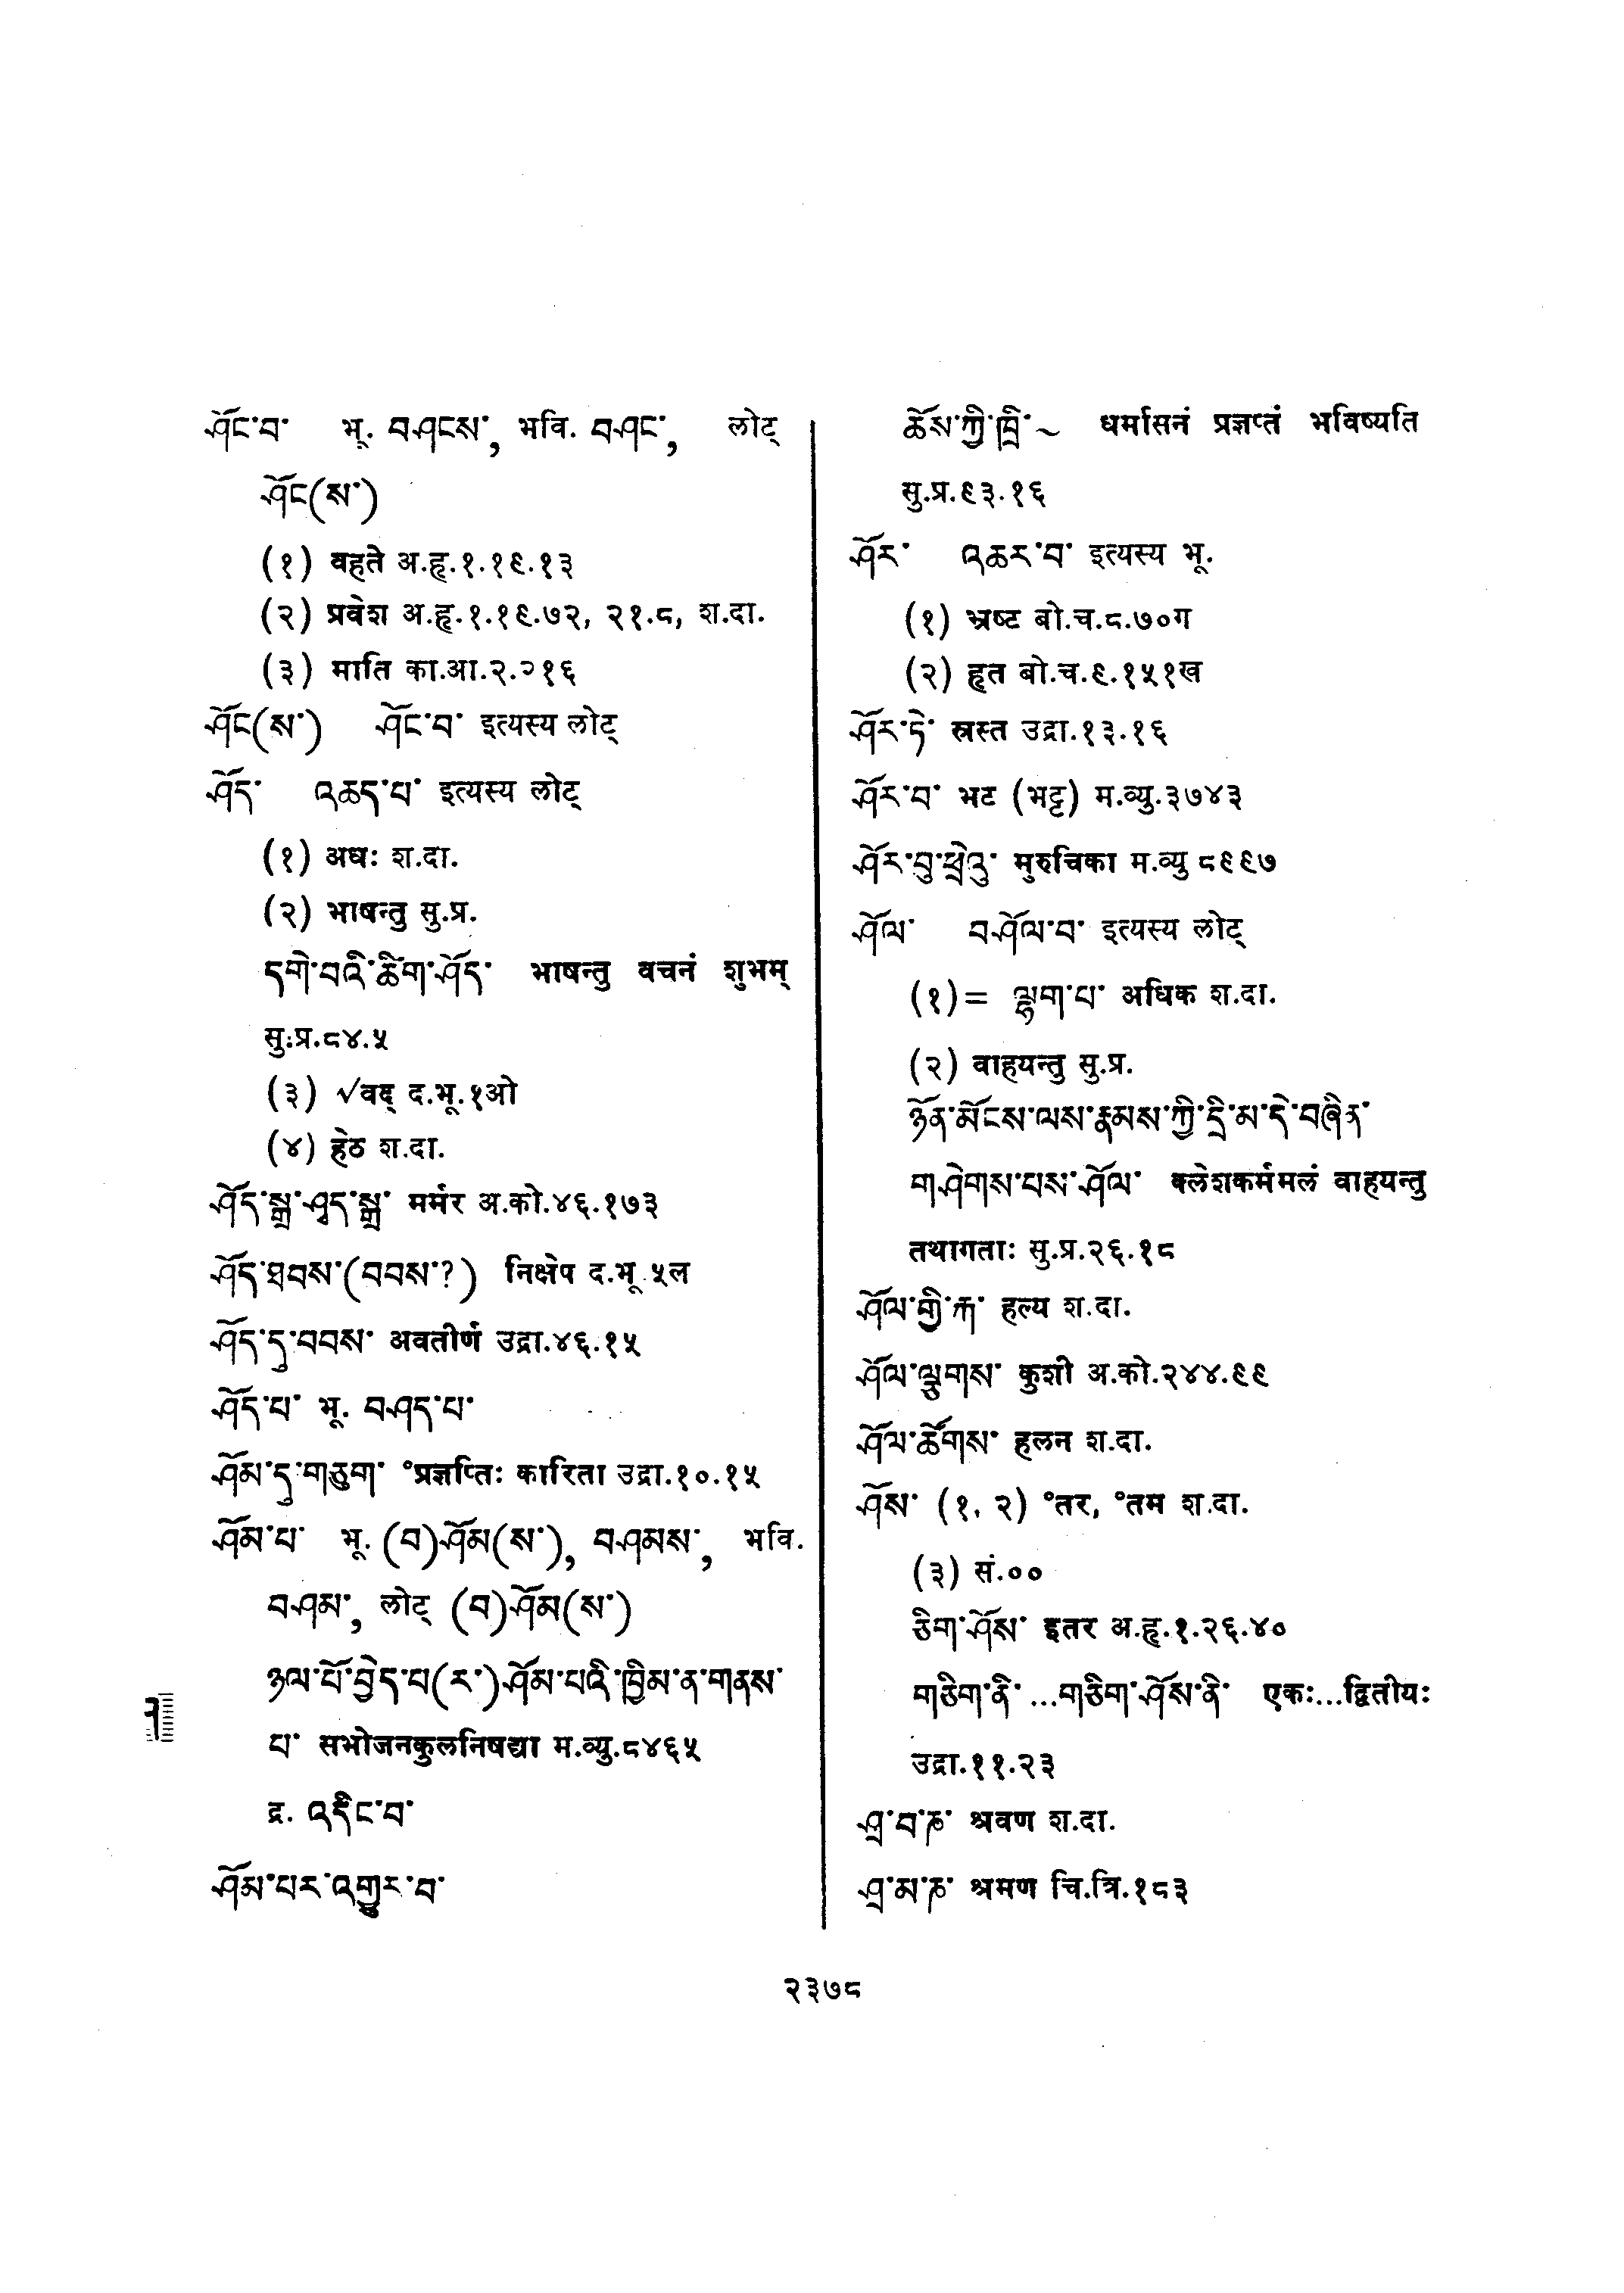 ཤོང་བ་ भू. བཤངས་, भवि. བཤང་, लोट्
ཤོང(ས་)
(१) वहते अ.हृ.१.१९.१३
(२) प्रवेश अ.हृ.१.१९.७२, २१.८, श.दा.
(३) माति का.आ.२.२१६
ཤོང(ས་) ཤོང་བ་ इत्यस्य लोट्
ཤོད་ འཆད་པ་ इत्यस्य लोट्
(१) अधः श.दा.
(२) भाषन्तु सु.प्र.
དགེ་བའི་ཚིག་ཤོད་ भाषन्तु वचनं शुभम्
सु.प्र.८४.५
(३) √वद् द.भू.१ओ
(४) हेठ श.दा.
ཤོད་སྒྲ་ཤྭད་སྒྲ་ मर्मर अ.को.४६.१७३
ཤོད་ཐབས་(བབས་?) निक्षेप द.भू.५ल
ཤོད་དུ་བབས་ अवतीर्ण उद्रा.४६.१५
ཤོད་པ་ भू. བཤད་པ་
ཤོམ་དུ་གཅུག་ °प्रज्ञप्तिः कारिता उद्रा.१०.१५
ཤོམ་པ་ भू. (བ)ཤོམ(ས་), བཤམས་, भवि.
བཤམ་, लोट् (བ)ཤོམ(ས་)
ཉལ་པོ་བྱེད་པ(ར་)ཤོམ་པའི་ཁྱིམ་ན་གནས་
པ་ सभोजनकुलनिषद्या म.व्यु.८४६५
द्र. འདིང་བ་
ཤོམ་པར་འགྱུར་བ་
ཆོས་ཀྱི་ཁྲི་~ धर्मासनं प्रज्ञप्तं भविष्यति
सु.प्र.९३.१६
ཤོར་ འཆར་བ་ इत्यस्य भू.
(१) भ्रष्ट बो.च.८.७०ग
(२) हृत बो.च.९.१५१ख
ཤོར་ཏེ་ स्रस्त उद्रा.१३.१६
ཤོར་བ་ भट (भट्ट) म.व्यु.३७४३
ཤོར་བུ་ཕྲེའུ་ मुरुचिका म.व्यु ८९९७
ཤོལ་ བཤོལ་བ་ इत्यस्य लोट्
(१)= ལྷག་པ་ अधिक श.दा.
(२) वाहयन्तु सु.प्र.
ཉོན་མོངས་ལས་རྣམས་ཀྱི་དྲི་མ་དེ་བཞིན་
གཤེགས་པས་ཤོལ་ क्लेशकर्ममलं वाहयन्तु
तथागताः सु.प्र.२६.१८
ཤོལ་གྱི་ཀ་ हल्य श.दा.
ཤོལ་ལྕུགས་ कुशी अ.को.२४४.९९
ཤོལ་ཚོགས་ हलन श.दा.
ཤོས་ (१, २) °तर, °तम श.दा.
(३) सं.००
ཅིག་ཤོས་ इतर अ.हृ.१.२६.४०
གཅིག་ནི་...གཅིག་ཤོས་ནི་ एकः...द्वितीयः
उद्रा.११.२३
ཤྲ་བ་ཎ་ श्रवण श.दा.
ཤྲ་མ་ཎ་ श्रमण चि.त्रि.१८३
२३७८